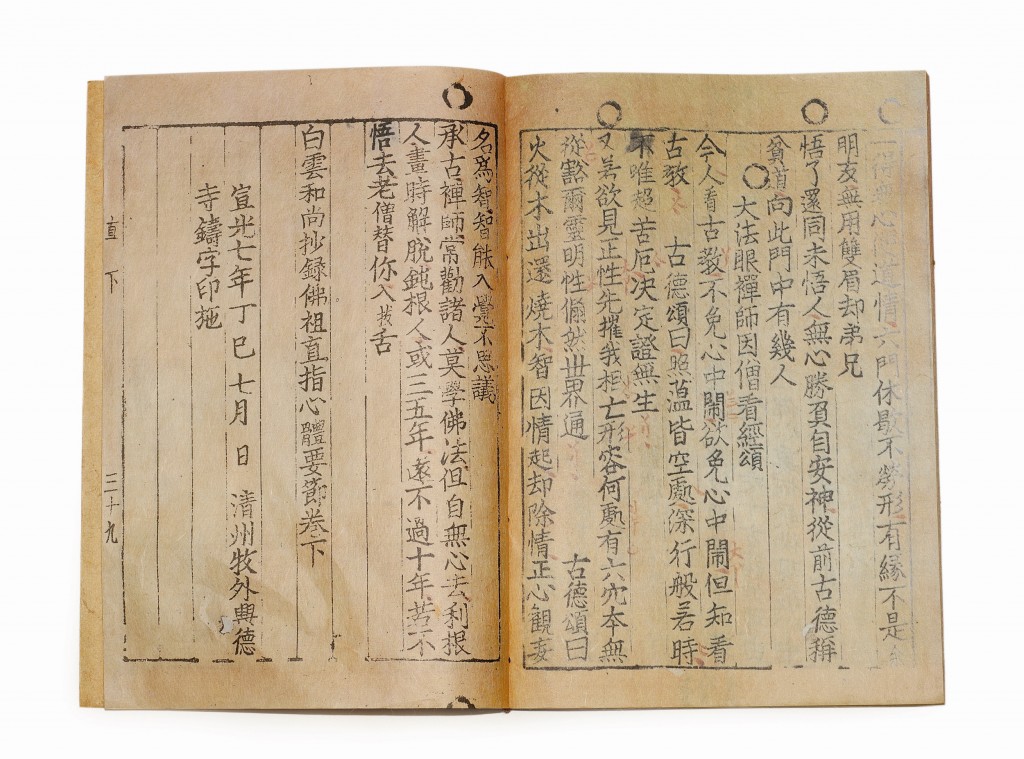 一得無心便道情六門休歇不勞形有緣不是
明友無用雙眉却弟兄
悟了還同未悟人無心勝負自安神從前古德稱
貧道向此門中有幾人
大法眼禪師因僧看經頌
今人看古敎不免心中鬧欲免心中鬧但知看
古敎 古德頌曰照蘊皆空處深行般若時
不唯超苦厄決定證無生
又若欲見正性先摧我相亡形容何處有六穴本無
從豁爾靈明性翛然世界通 古德頌曰
火從木出還燒木智因情起却除情正心觀妄
名爲智智能入覺不思議
承古禪師常勸諸人莫學佛法但自無心去利根
人晝時解脫鈍根人或三五年遠不過十年若不
悟去老僧替你入拔舌
白雲和尚抄錄佛祖直指心體要節卷下
宣光七年丁巳七月 日 清州牧外興德
寺鑄字印施
直 下 三十九